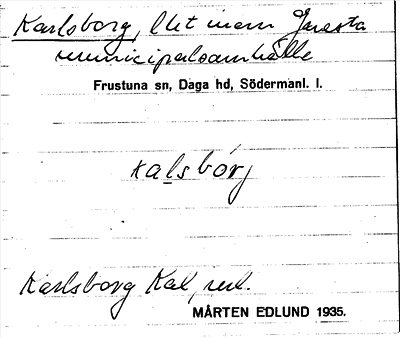 Karlsborg, lht inom Gnesta
municipalsamhälle
Frustuna sn, Daga hd, Södermanl. l.
kalsbórj
Karlsborg Kal, red.
MÅRTEN EDLUND 1935.